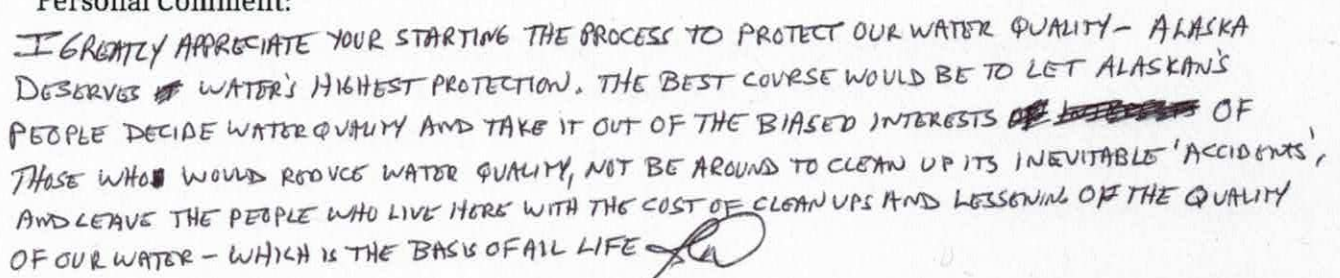 Personal Comment:
I GREATLY APPRECIATE YOUR STARTING THE PROCESS TO PROTECT OUR WATER QUALITY – ALASKA
DESERVES WATER'S HIGHEST PROTECTION. THE BEST COURSE WOULD BE TO LET ALASKAN'S
PEOPLE DECIDE WATER QUALITY AND TAKE IT OUT OF THE BIASED INTERESTS OF
THOSE WHO WOULD REDUCE WATER QUALITY, NOT BE AROUND TO CLEAN UP ITS INEVITABLE 'ACCIDENTS',
AND LEAVE THE PEOPLE WHO LIVE HERE WITH THE COST OF CLEAN UPS AND LESSENING OF THE QUALITY
OF OUR WATER – WHICH IS THE BASIS OF ALL LIFE